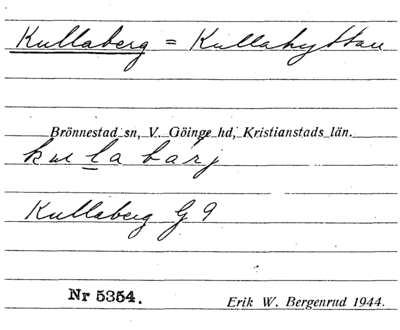 Kullaberg = Kullahyttan
Brönnestad sn, V. Göinge hd, Kristianstads län.
kulabárj
Kullaberg G 9
Nr 5354.
Erik W. Bergenrud 1944.